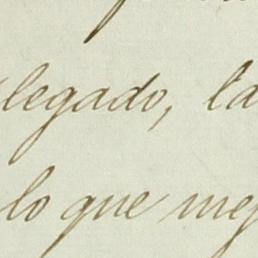 legado, la
lo que mej